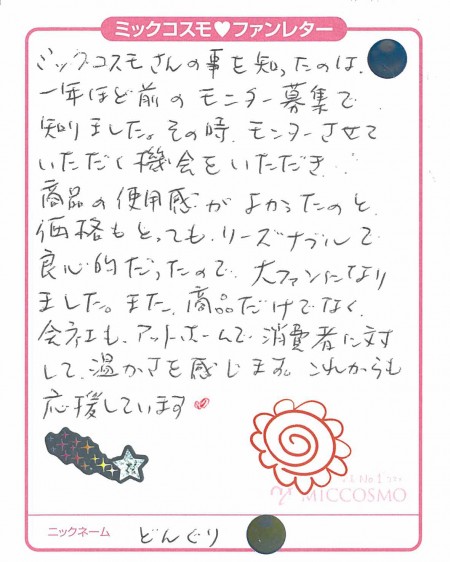 ミックコスモ♥ファンレター
ミックコスモさんの事を知ったのは、
一年ほど前のモニター募集で
知りました。その時、モニターさせて
いただく機会をいただき、
商品の使用感がよかったのと、
価格もとっても、リーズナブルで
良心的だったので、大ファンになり
ました。また、商品だけでなく、
会社も、アットホームで、消費者に対
して、温かさを感じます。これからも
応援しています
No1
MICCOSMO
ニックネーム どんぐり